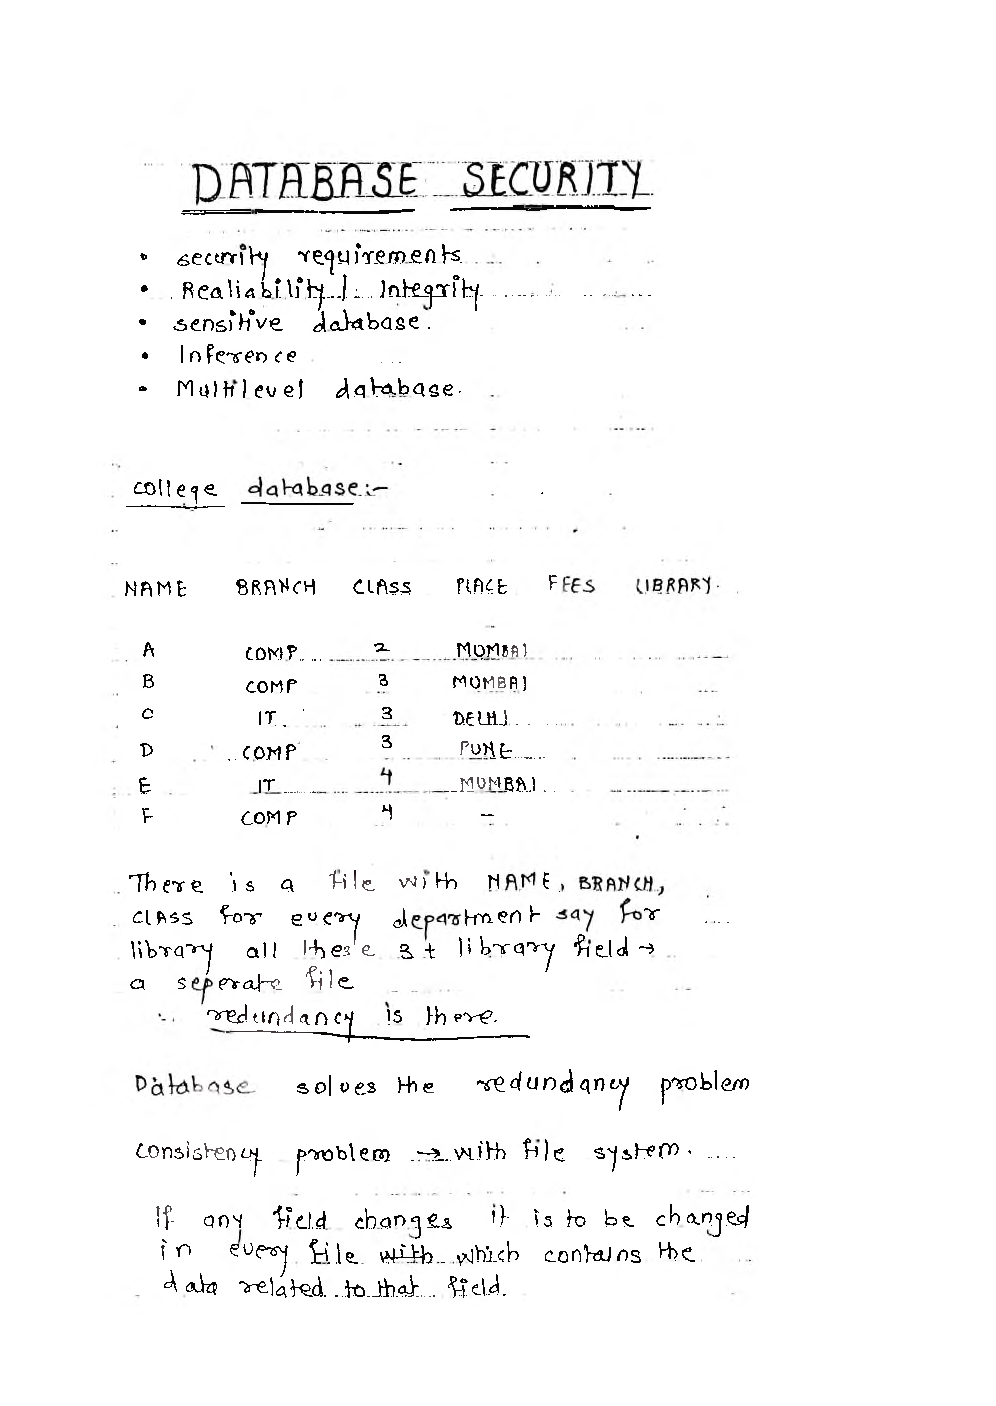 DATABASE SECURITY
• security requirements
• Realiability | Integrity
• sensitive database.
• Inference
• Multilevel database.
college database:-
NAME BRANCH CLASS PLACE FEES LIBRARY.
A COMP 2 MUMBAI
B COMP 3 MUMBAI
C IT 3 DELHI
D COMP 3 PUNE
E IT 4 MUMBAI
F COMP 4 -
There is a file with NAME, BRANCH,
CLASS for every department say for
library all these 3 + library field →
a seperate file
∴ redundancy is there.
Database solves the redundancy problem
consistency problem → with file system.
If any field changes it is to be changed
in every file with which contains the
data related to that field.